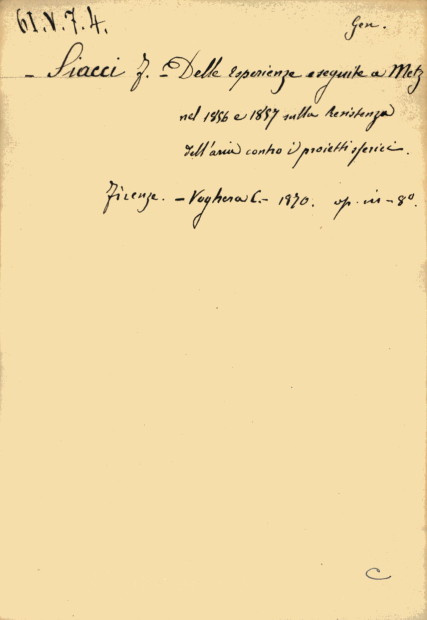 61.V.7.4.
Gen.
- Siacci F. - Delle esperienze eseguite a Metz
nel 1856 e 1857 sulla Resistenza
dell'aria contro i proietti sferici.
Firenze. - Voghera C. - 1870. op. in - 8º.
C